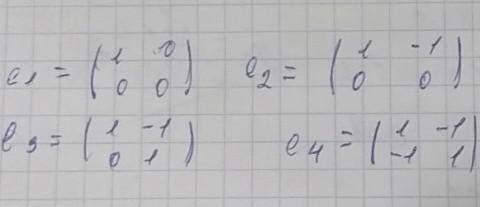 e₁ = (1 0
0 0) e₂ = (1 -1
0 0)
e₃ = (1 -1
0 1) e₄ = (1 -1
-1 1)